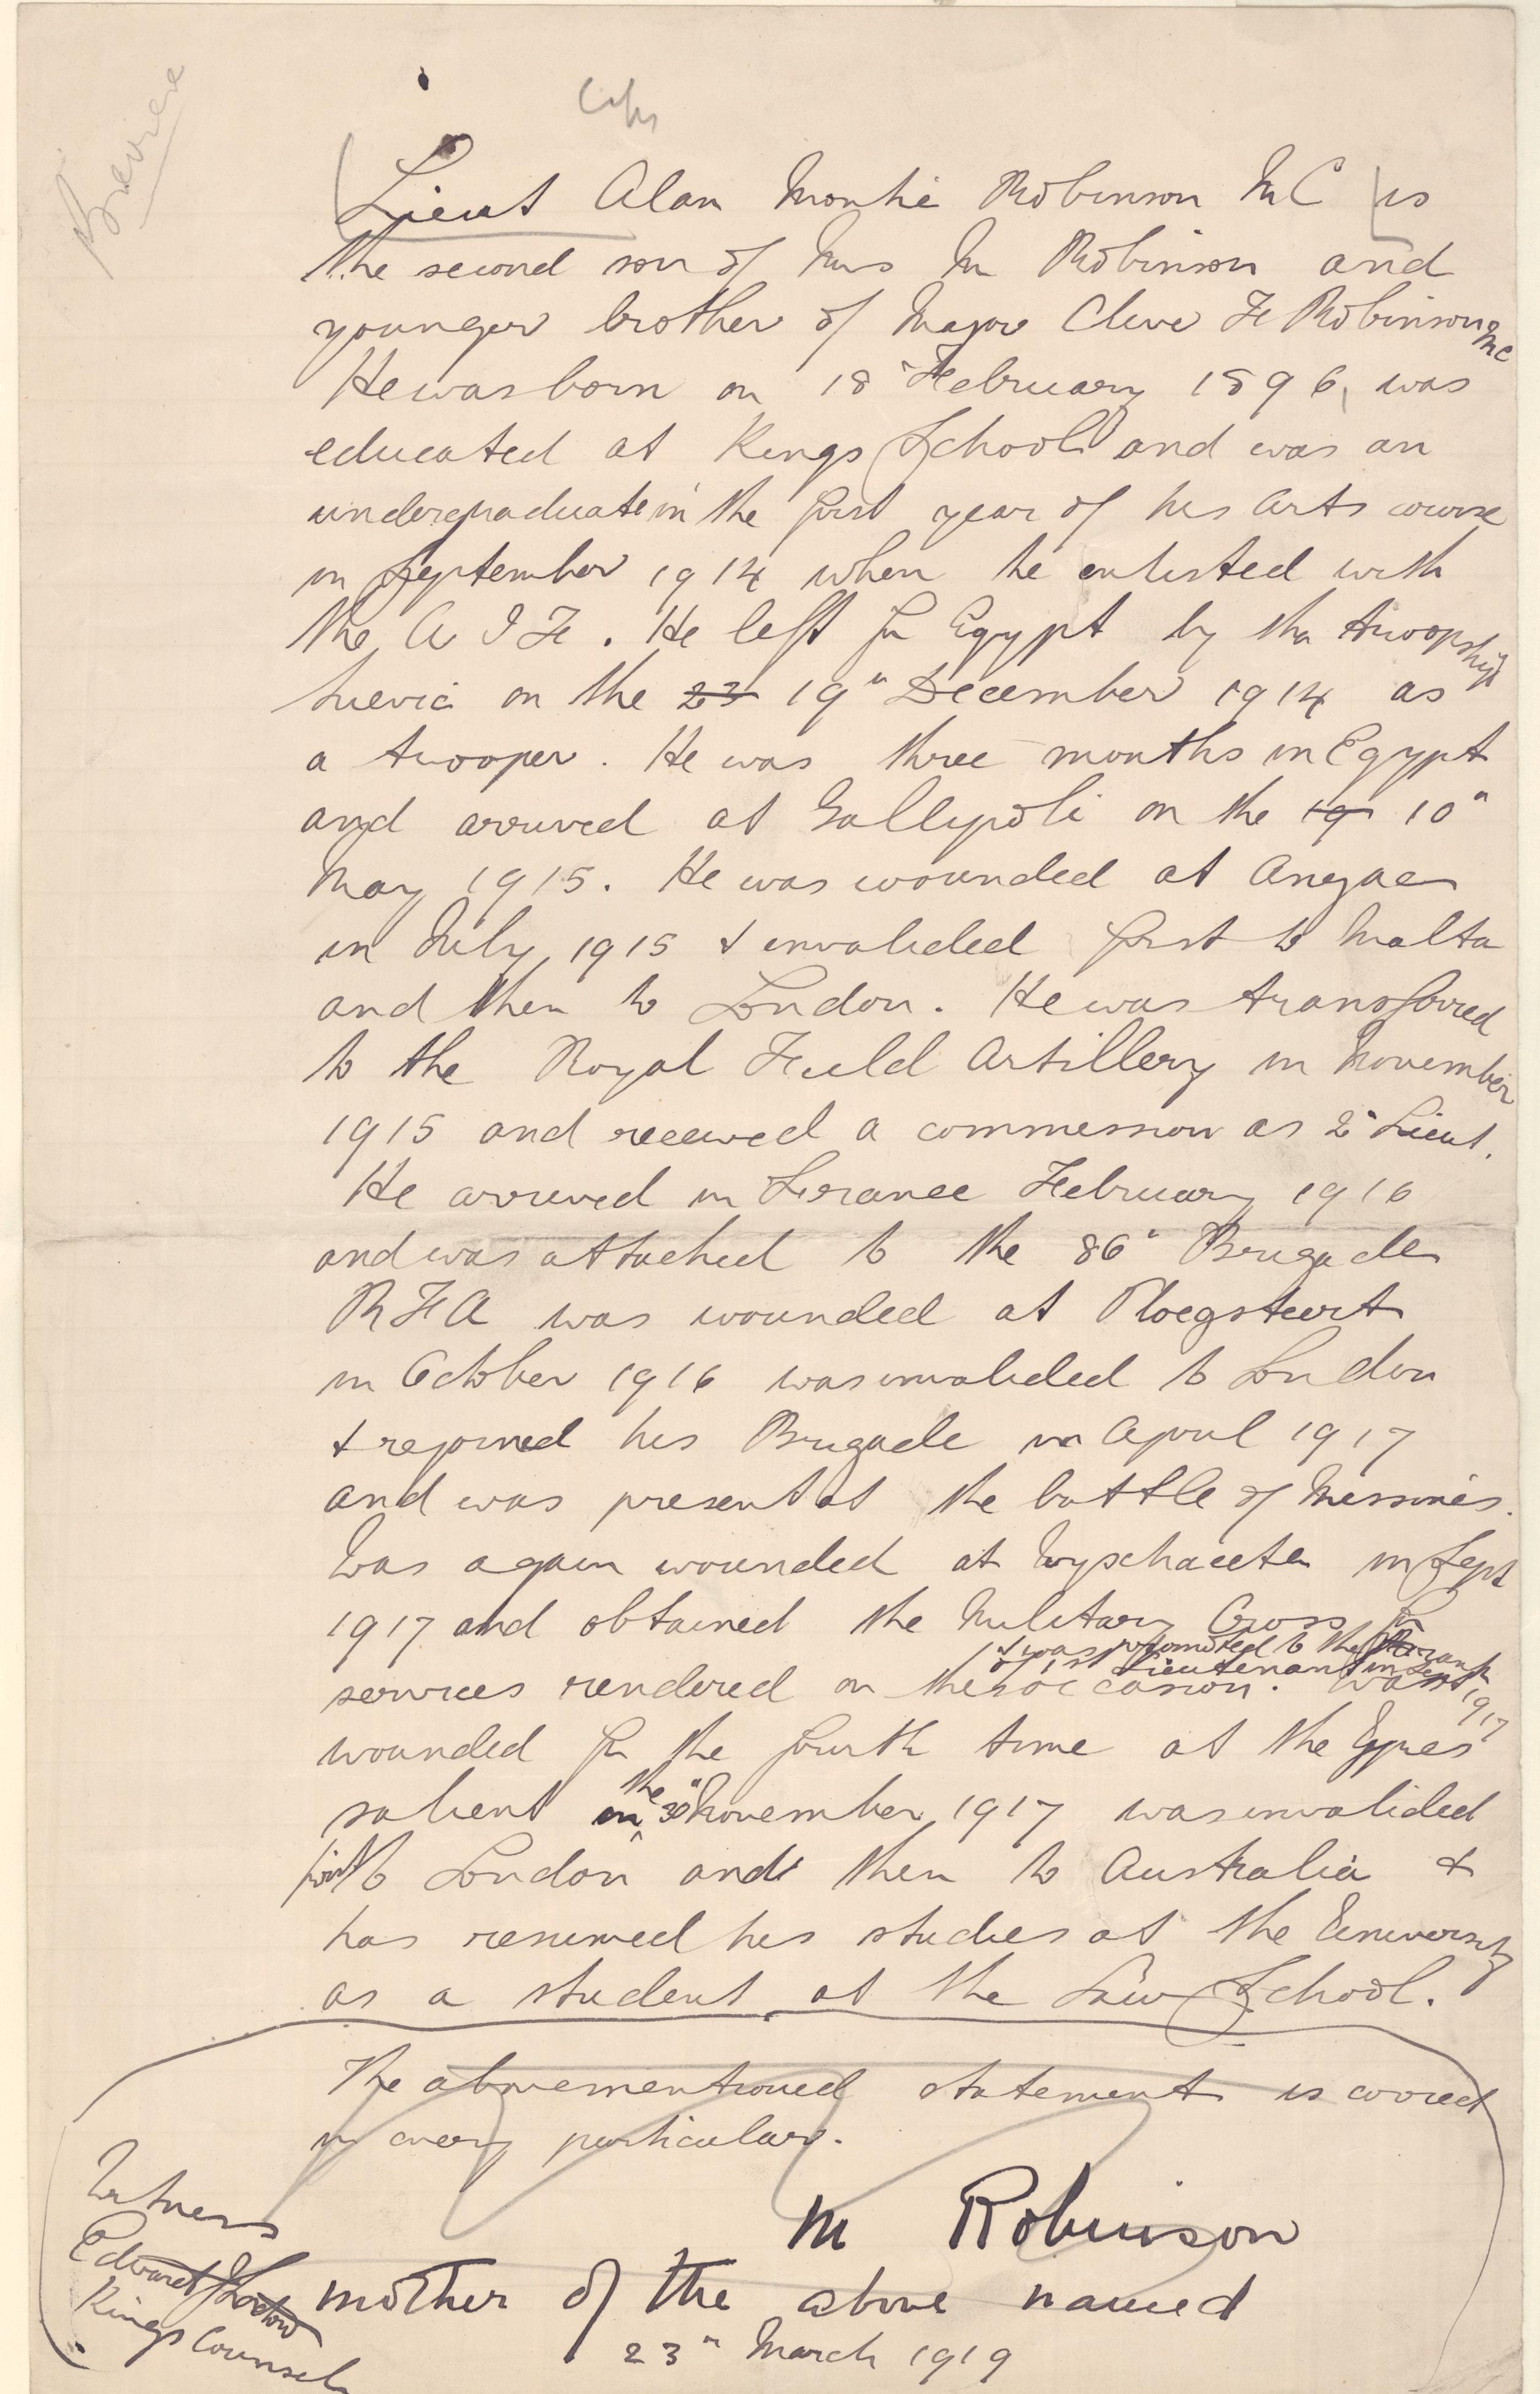 Lieut Alan Monkie Robinson MC is
the second son of Mrs M Robinson and
younger brother of Major Clive F Robinson MC
He was born on 18 February 1896, was
educated at Kings School and was an
undergraduate in the first year of his Arts course
in September 1914 when he enlisted with
the A I F. He left for Egypt by the troopship
Suevic on the 23 19" December 1914 as
a trooper. He was three months in Egypt
and arrived at Gallipoli on the 19 10"
May 1915. He was wounded at Anzac
in July 1915 & invalided first to Malta
and then to London. He was transferred
to the Royal Field Artillery in November
1915 and received a commission as 2" Lieut.
He arrived in France February 1916
and was attached to the 86" Brigade
R F A was wounded at Ploegsteert
in October 1916 was invalided to London
& rejoined his Brigade in April 1917
and was present at the battle of Messines.
Was again wounded at Wyschaete in Sept
1917 and obtained the Military Cross for
& was promoted to the rank
of 1st Lieutenant in Sept 1917
services rendered on the occasion. Was
wounded for the fourth time at the Ypres
salient in the 30" November 1917 was invalided
first to London and then to Australia &
has resumed his studies at the University
as a student at the Law School.
The abovementioned statement is correct
in every particular.
M Robinson
mother of the above named
23" March 1919
Witness
Edward
Kings Counsel